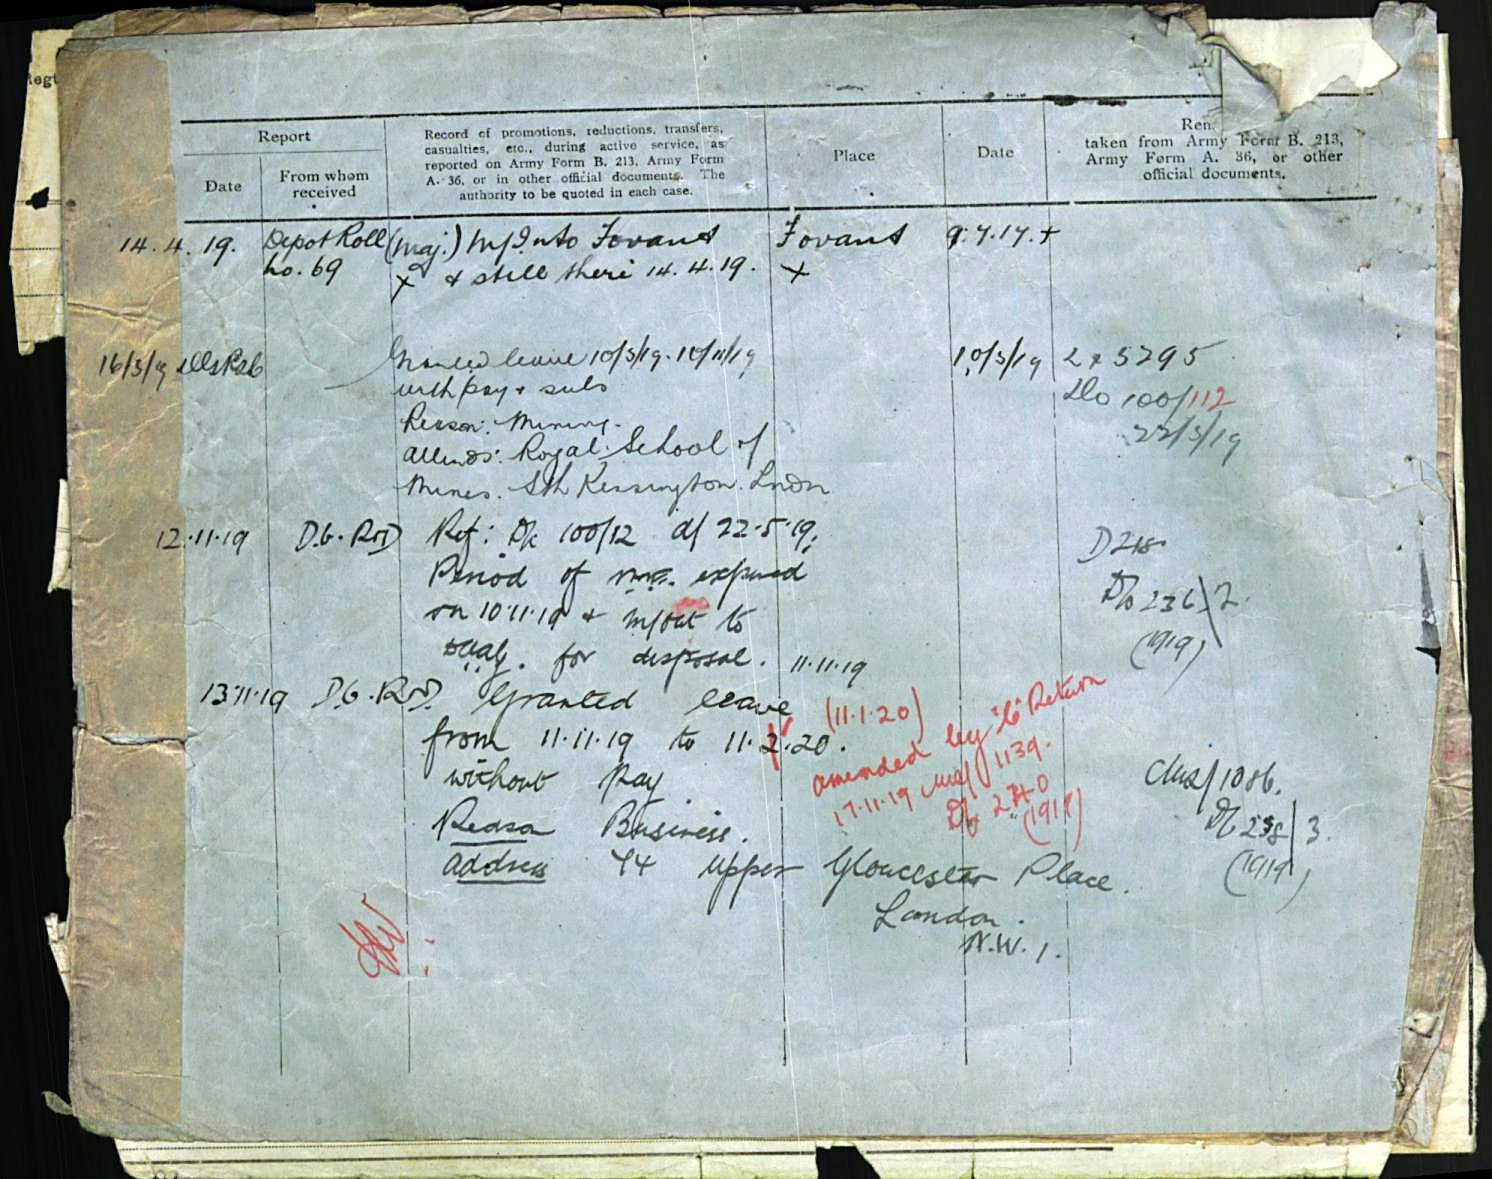 Regt
Report
Date
From whom
received
Record of promotions, reductions, transfers,
casualties, etc., during active service, as
reported on Army Form B. 213, Army Form
A. 36, or in other official documents. The
authority to be quoted in each case.
Place
Date
Rem
taken from Army Form B. 213,
Army Form A. 36, or other
official documents.
14.4.19. Depot Roll (Maj.) M/Into Fovant Fovant 9.7.17.+
no. 69 x & still there 14.4.19. x
16/5/19 Granted leave 10/5/19 - 10/11/19 10/5/19 2 x 5295
with pay & subs DO 100/112
Reason: Mining. 22/5/19
Attends: Royal School of
Mines. Sth Kensington. Lndn
12.11.19 D.G. R&D Ref: DO 100/12 d/ 22.5.19; D218
Period of expired DO 236/2.
on 10.11.19 & M/out to (1919)
for disposal. 11.11.19
13.11.19 D.G. R&D. Granted leave
from 11.11.19 to 11.2.20. (11.1.20)
amended by "C" Return
17.11.19 1139.
DO 240
(1919)
without Pay
Reason Business.
address 44 Upper Gloucester Place.
London.
N.W. 1.
1086.
DO 238/3.
(1919)